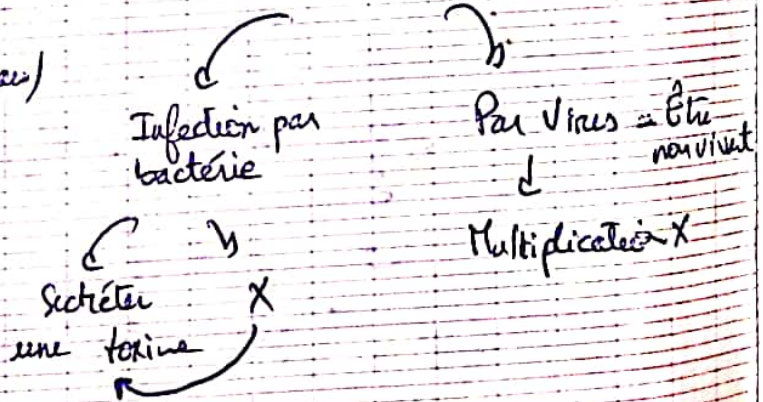 Infection par
bactérie
Par Virus = Être
non vivant
Multiplication X
Secréter
une toxine
X